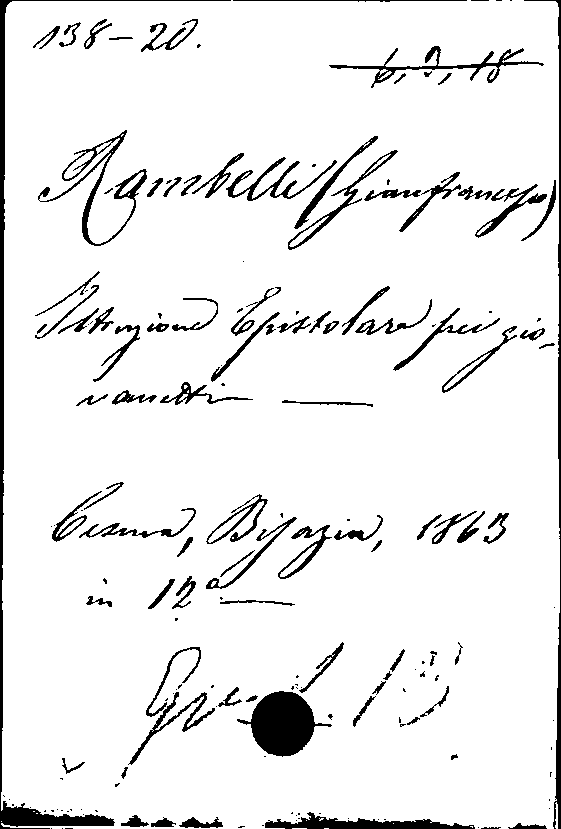 138-20.
6, 2, 18
Rambelli (Gianfrancesco)
Istruzione Epistolare pei gio-
vanetti —
Cesena, Bisazia, 1863
in 12° —
13